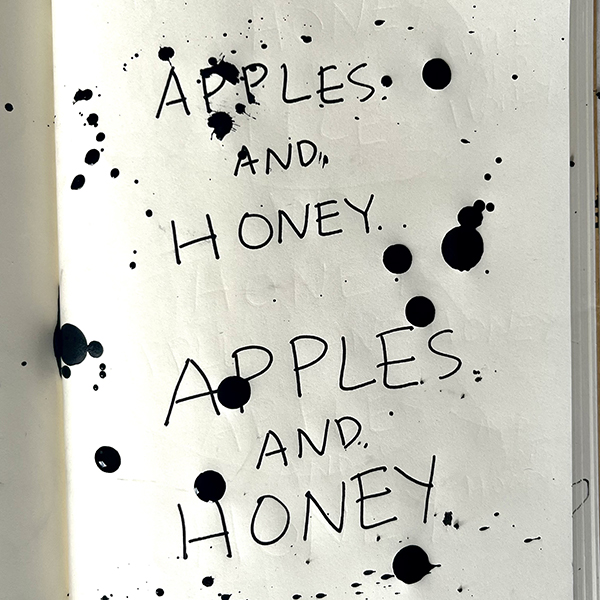 APPLES.
AND,,
HONEY.
APPLES.
AND.
HONEY.